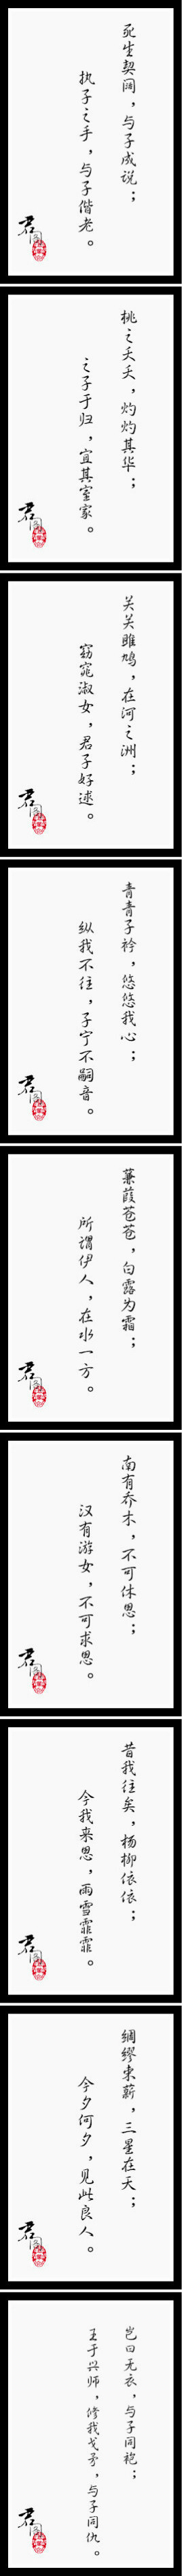 死生契阔，与子成说；
执子之手，与子偕老。
君
桃之夭夭，灼灼其华；
之子于归，宜其室家。
君
关关雎鸠，在河之洲；
窈窕淑女，君子好逑。
君
青青子衿，悠悠我心；
纵我不往，子宁不嗣音。
君
蒹葭苍苍，白露为霜；
所谓伊人，在水一方。
君
南有乔木，不可休思；
汉有游女，不可求思。
君
昔我往矣，杨柳依依；
今我来思，雨雪霏霏。
君
绸缪束薪，三星在天；
今夕何夕，见此良人。
君
岂曰无衣，与子同袍；
王于兴师，修我戈矛，与子同仇。
君